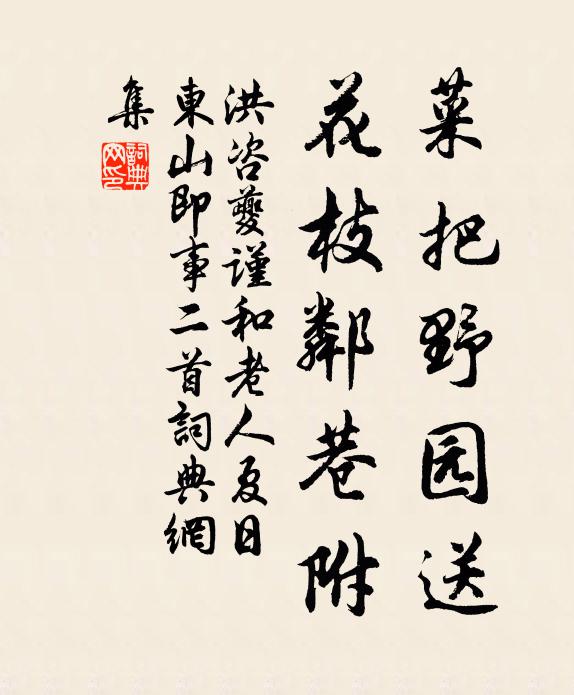 菜把野园送
花枝鄰巷附
洪咨夔謹和老人夏日
東山即事二首詞典網
集
詞典
网印